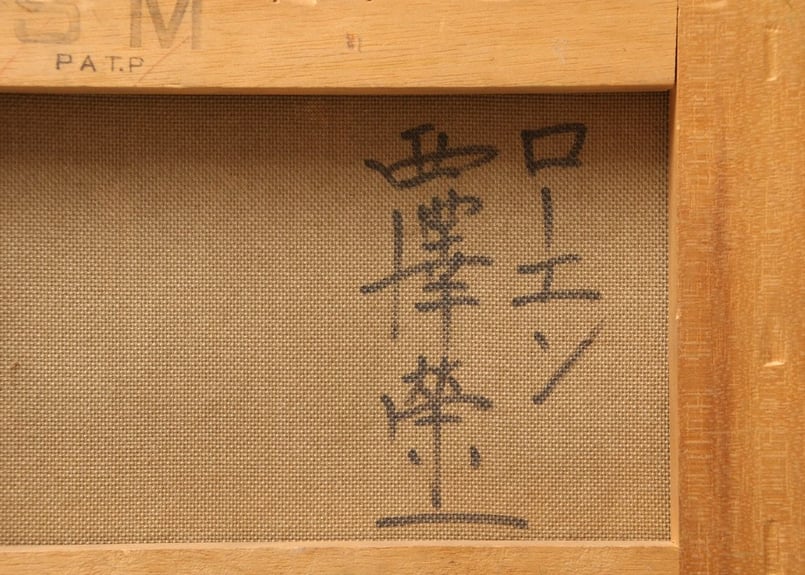 SM
PAT.P
ローエン
西澤榮一